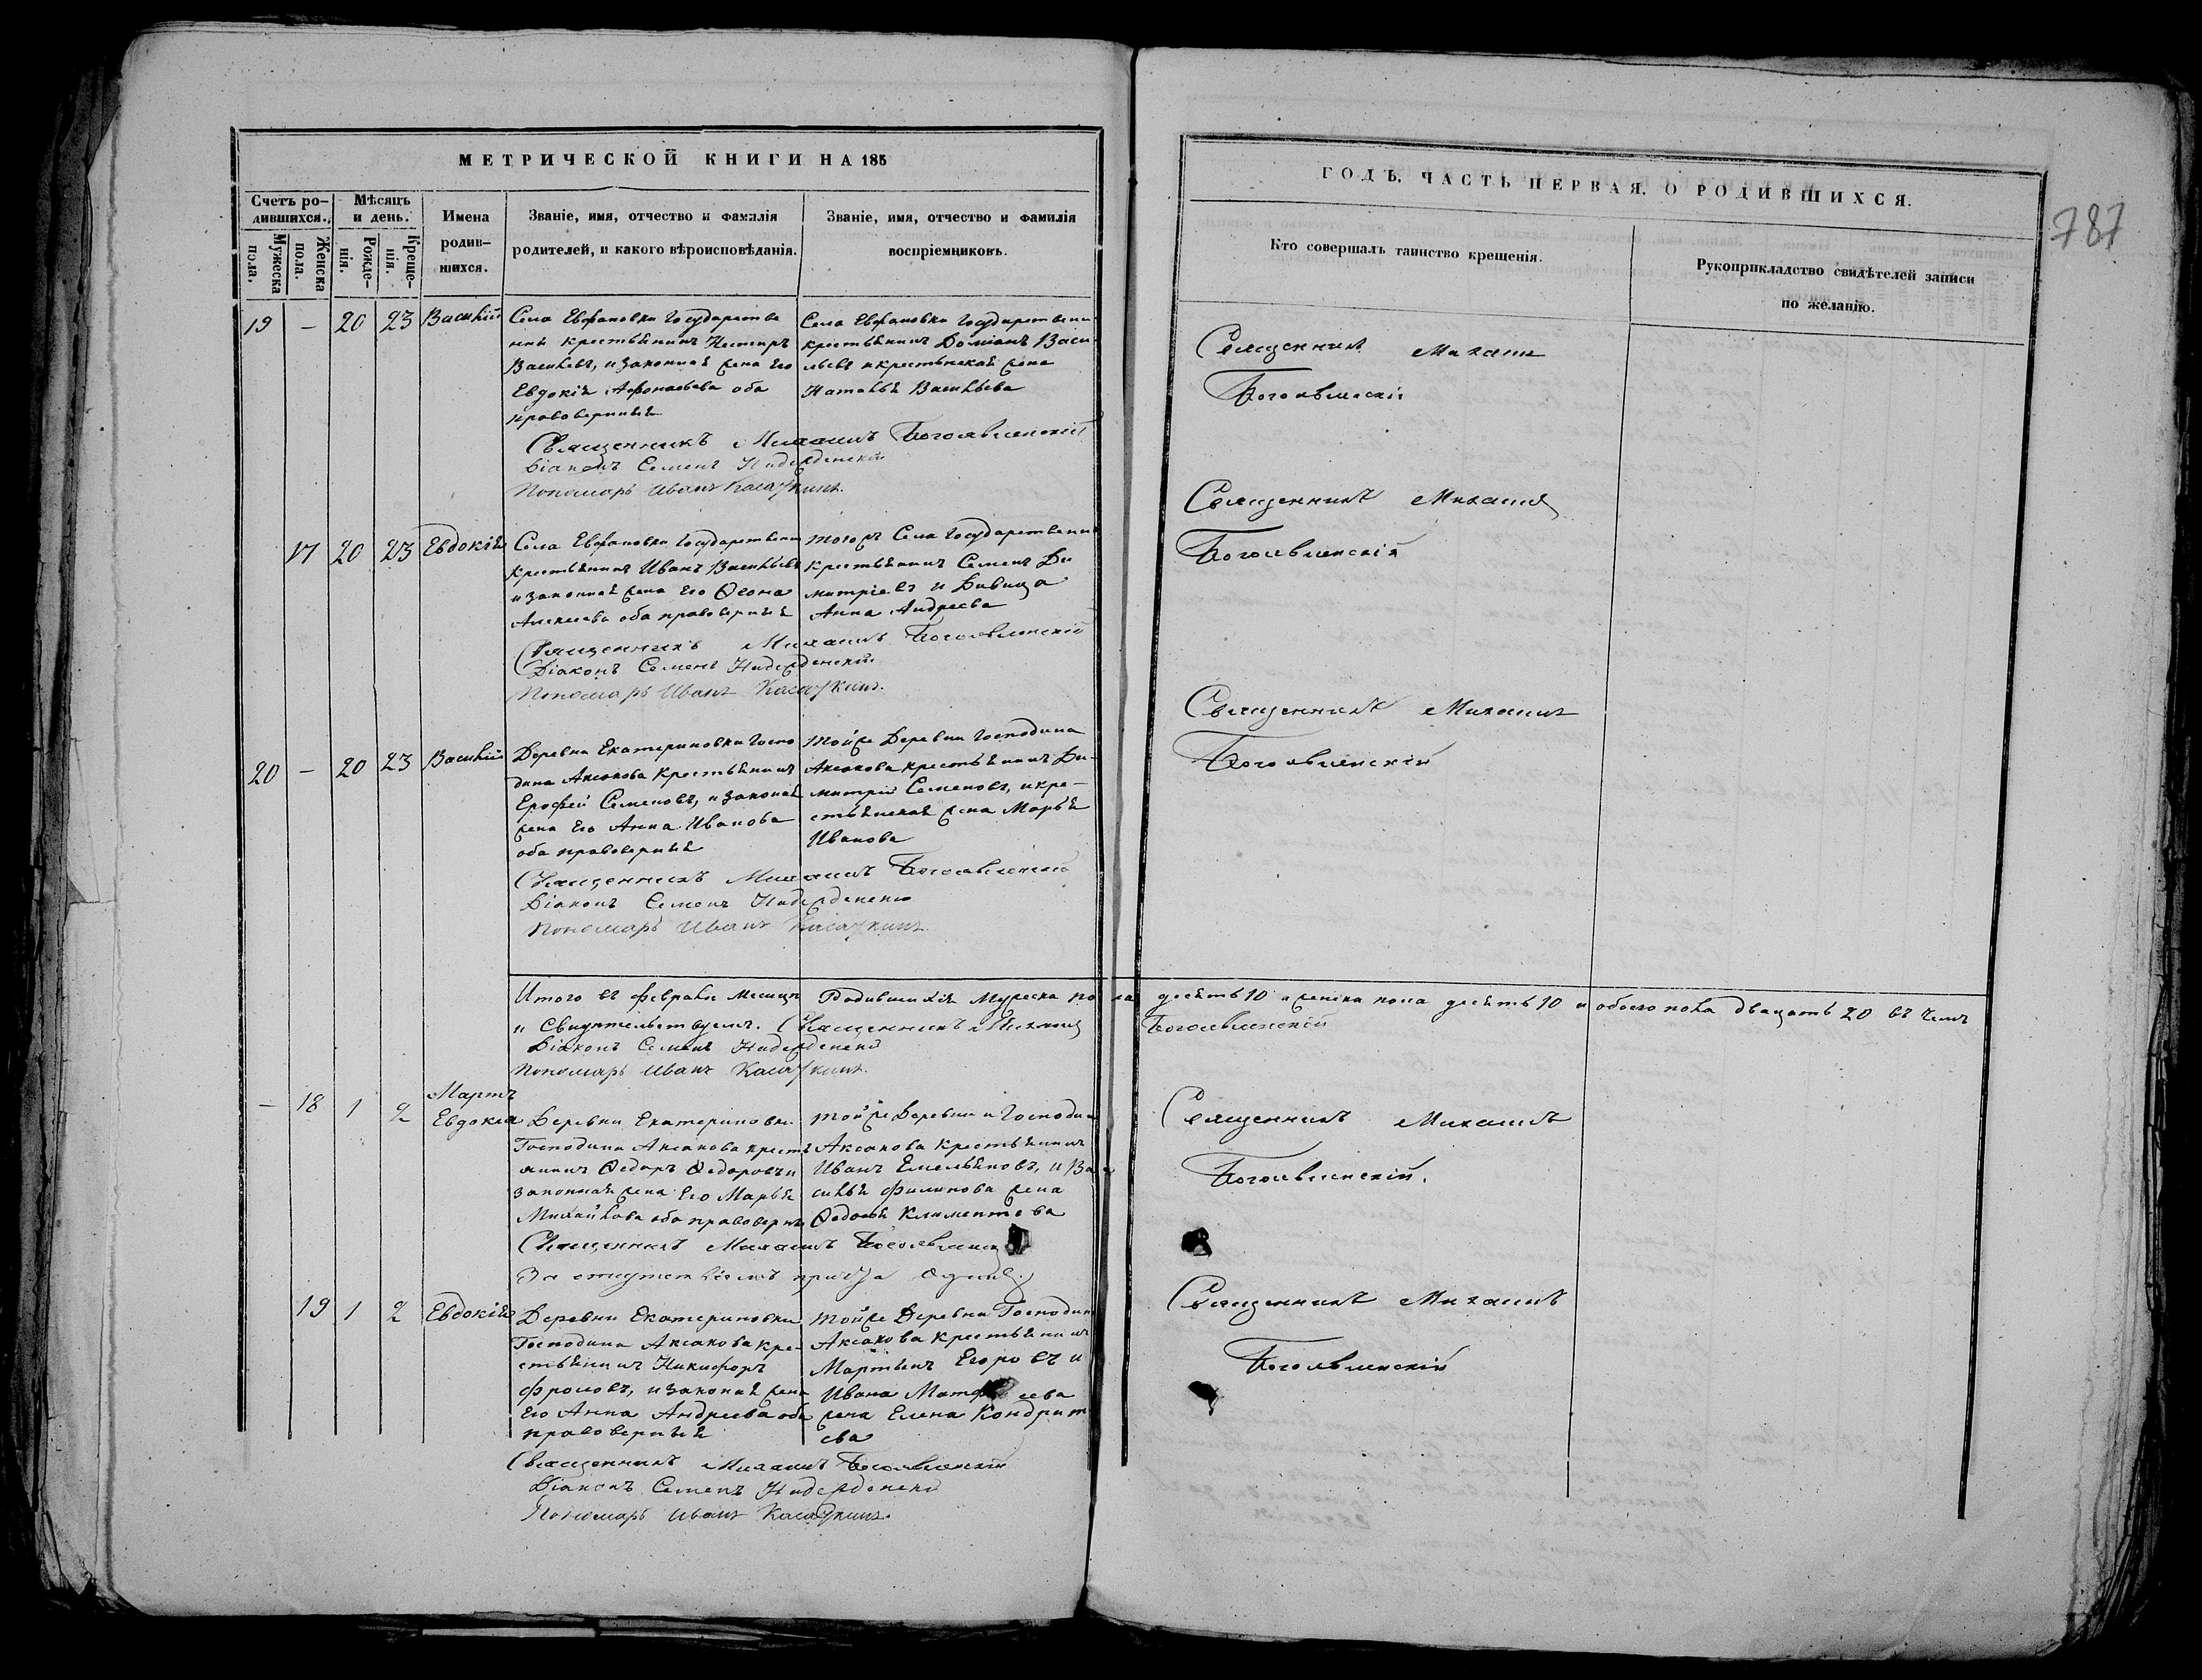 МЕТРИЧЕСКОЙ КНИГИ НА 185
Счетъ ро-
дившихся.
Мужеска
пола.
Женска
пола.
Мѣсяцъ
и день.
Рожде-
нія.
Креще-
нія.
Имена
родив-
шихся.
Званіе, имя, отчество и фамилія
родителей, и какого вѣроисповѣданія.
Званіе, имя, отчество и фамилія
воспріемниковъ.
19 – 20 23 Василій
Села Евфановки Государстве
крестьянинъ Нестеръ
Васильевъ, и законная жена его
Евдокія Афонасьева оба
православныя
Села Евфановки Государствен
крестьянинъ Доміанъ Васи
льевъ и крестьянская жена
Наталья Васильева
Священникъ Михаилъ Богоявленскій
Діаконъ Семенъ
Пономарь Иванъ Касаткинъ.
17 20 23 Евдокія
Села Евфановки Государствен
крестьянинъ Иванъ Васильевъ
и законная жена его
Алексеева оба
тогожъ Села Государствен
крестьянинъ Семенъ Ди
митріевъ и Дивица
Анна Андреева
Священникъ Михаилъ Богоявленскій
Діаконъ Семенъ
Пономарь Иванъ Касаткинъ.
20 – 20 23 Василій
Деревни Екатериновки Госпо
дина Аксакова Крестьянинъ
Ерофей Семеновъ, и законая
жена его Анна Иванова
оба
Тойже Деревни Господина
Аксакова крестьянинъ Ди-
митрій Семеновъ, и кре-
стьянская жена Марья
Иванова
Священникъ Михаилъ Богоявленскій
Діаконъ Семенъ
Пономарь Иванъ Касаткинъ.
Итого въ Феврале месице Родившихся Мужеска пола десять 10 и женска пола десять 10 и обоего пола двацать 20 въ чемъ
и Свидительствуемъ. Священникъ Михаилъ Богоявленскій
Діаконъ Семенъ
Пономарь Иванъ Касаткинъ.
Мартъ
– 18 1 2 Евдокия
Деревни Екатериновки
Господина Аксакова крестья
янинъ Федоръ Федоровъ и
законная жена его Марья
Михайлова оба
тойже Деревни и Господина
Аксакова Крестьянинъ
Иванъ Емельяновъ, и Ва
силья Филипова жена
Федосья Климентева
Священникъ Михаилъ
19 1 2 Евдокія
Деревни Екатериновки
Господина Аксакова кре
стьянинъ Никифоръ
Фроловъ, и законая жена
его Анна Андреева оба
тойже Деревни Господина
Аксакова Крестьянинъ
Мартынъ Егоровъ и
Ивана Матфеева
жена Елена Кондрат
ева
Священникъ Михаилъ Богоявленскій
Діаконъ Семенъ
Пономарь Иванъ Касаткинъ.
ГОДЪ. ЧАСТЬ ПЕРВАЯ. О РОДИВШИХСЯ.
787
Кто совершалъ таинство крещенія.
Рукоприкладство свидѣтелей записи
по желанію.
Священникъ Михаилъ
Богоявленскій
Священникъ Михаилъ
Богоявленскій
Священникъ Михаилъ
Богоявленскій
Священникъ Михаилъ
Богоявленскій.
Священникъ Михаилъ
Богоявленскій